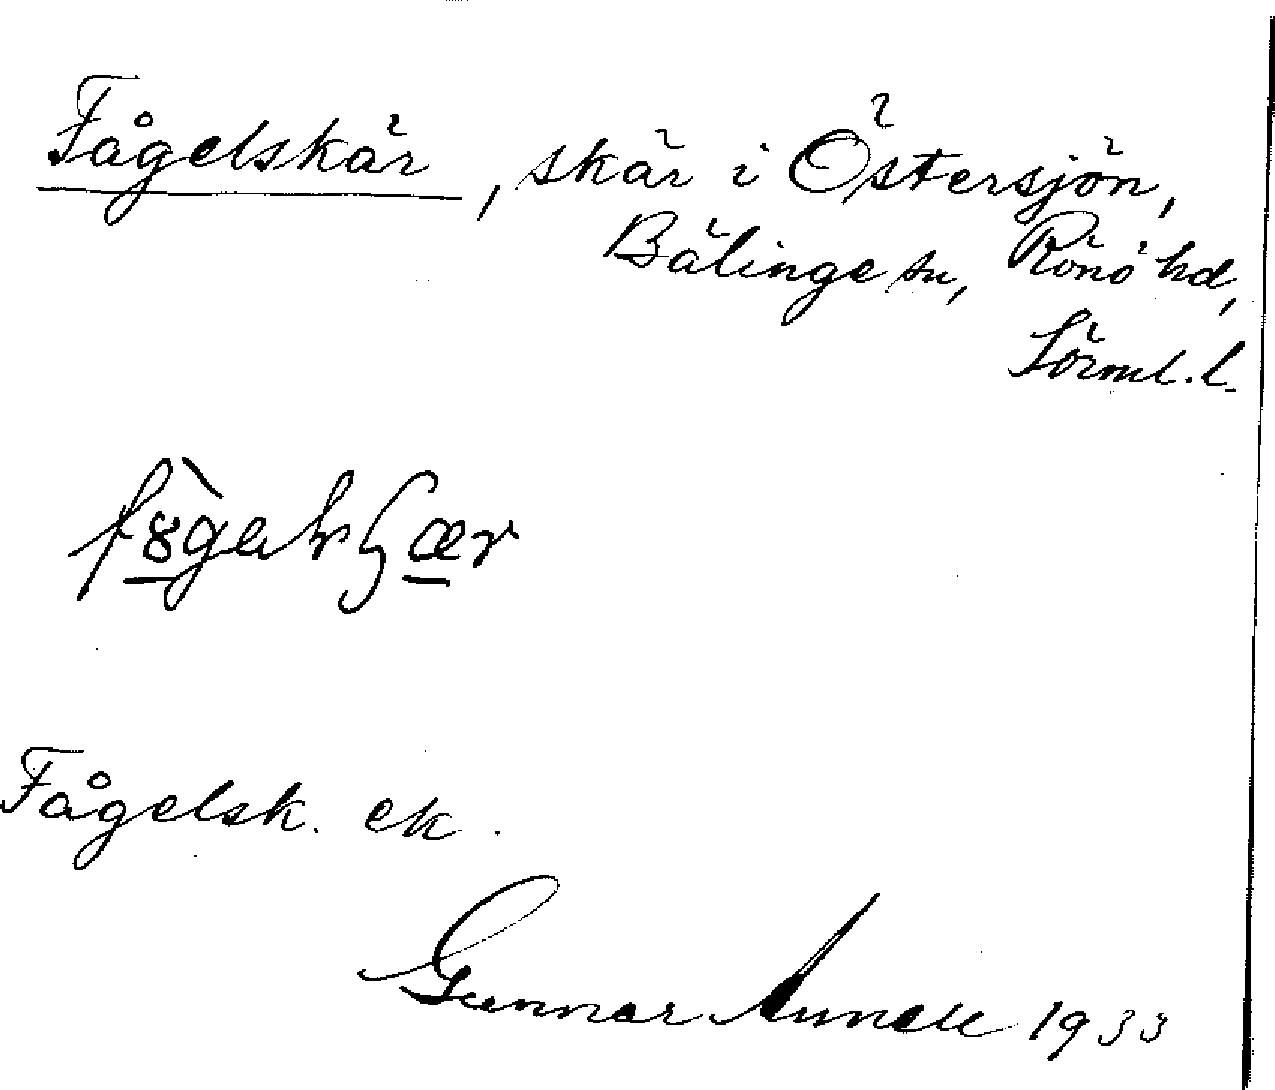 Fågelskär, skär i Östersjön,
Bälinge sn, Rönö hd,
Sörml. l.
Fågelsk. ek.
Gunnar 1933